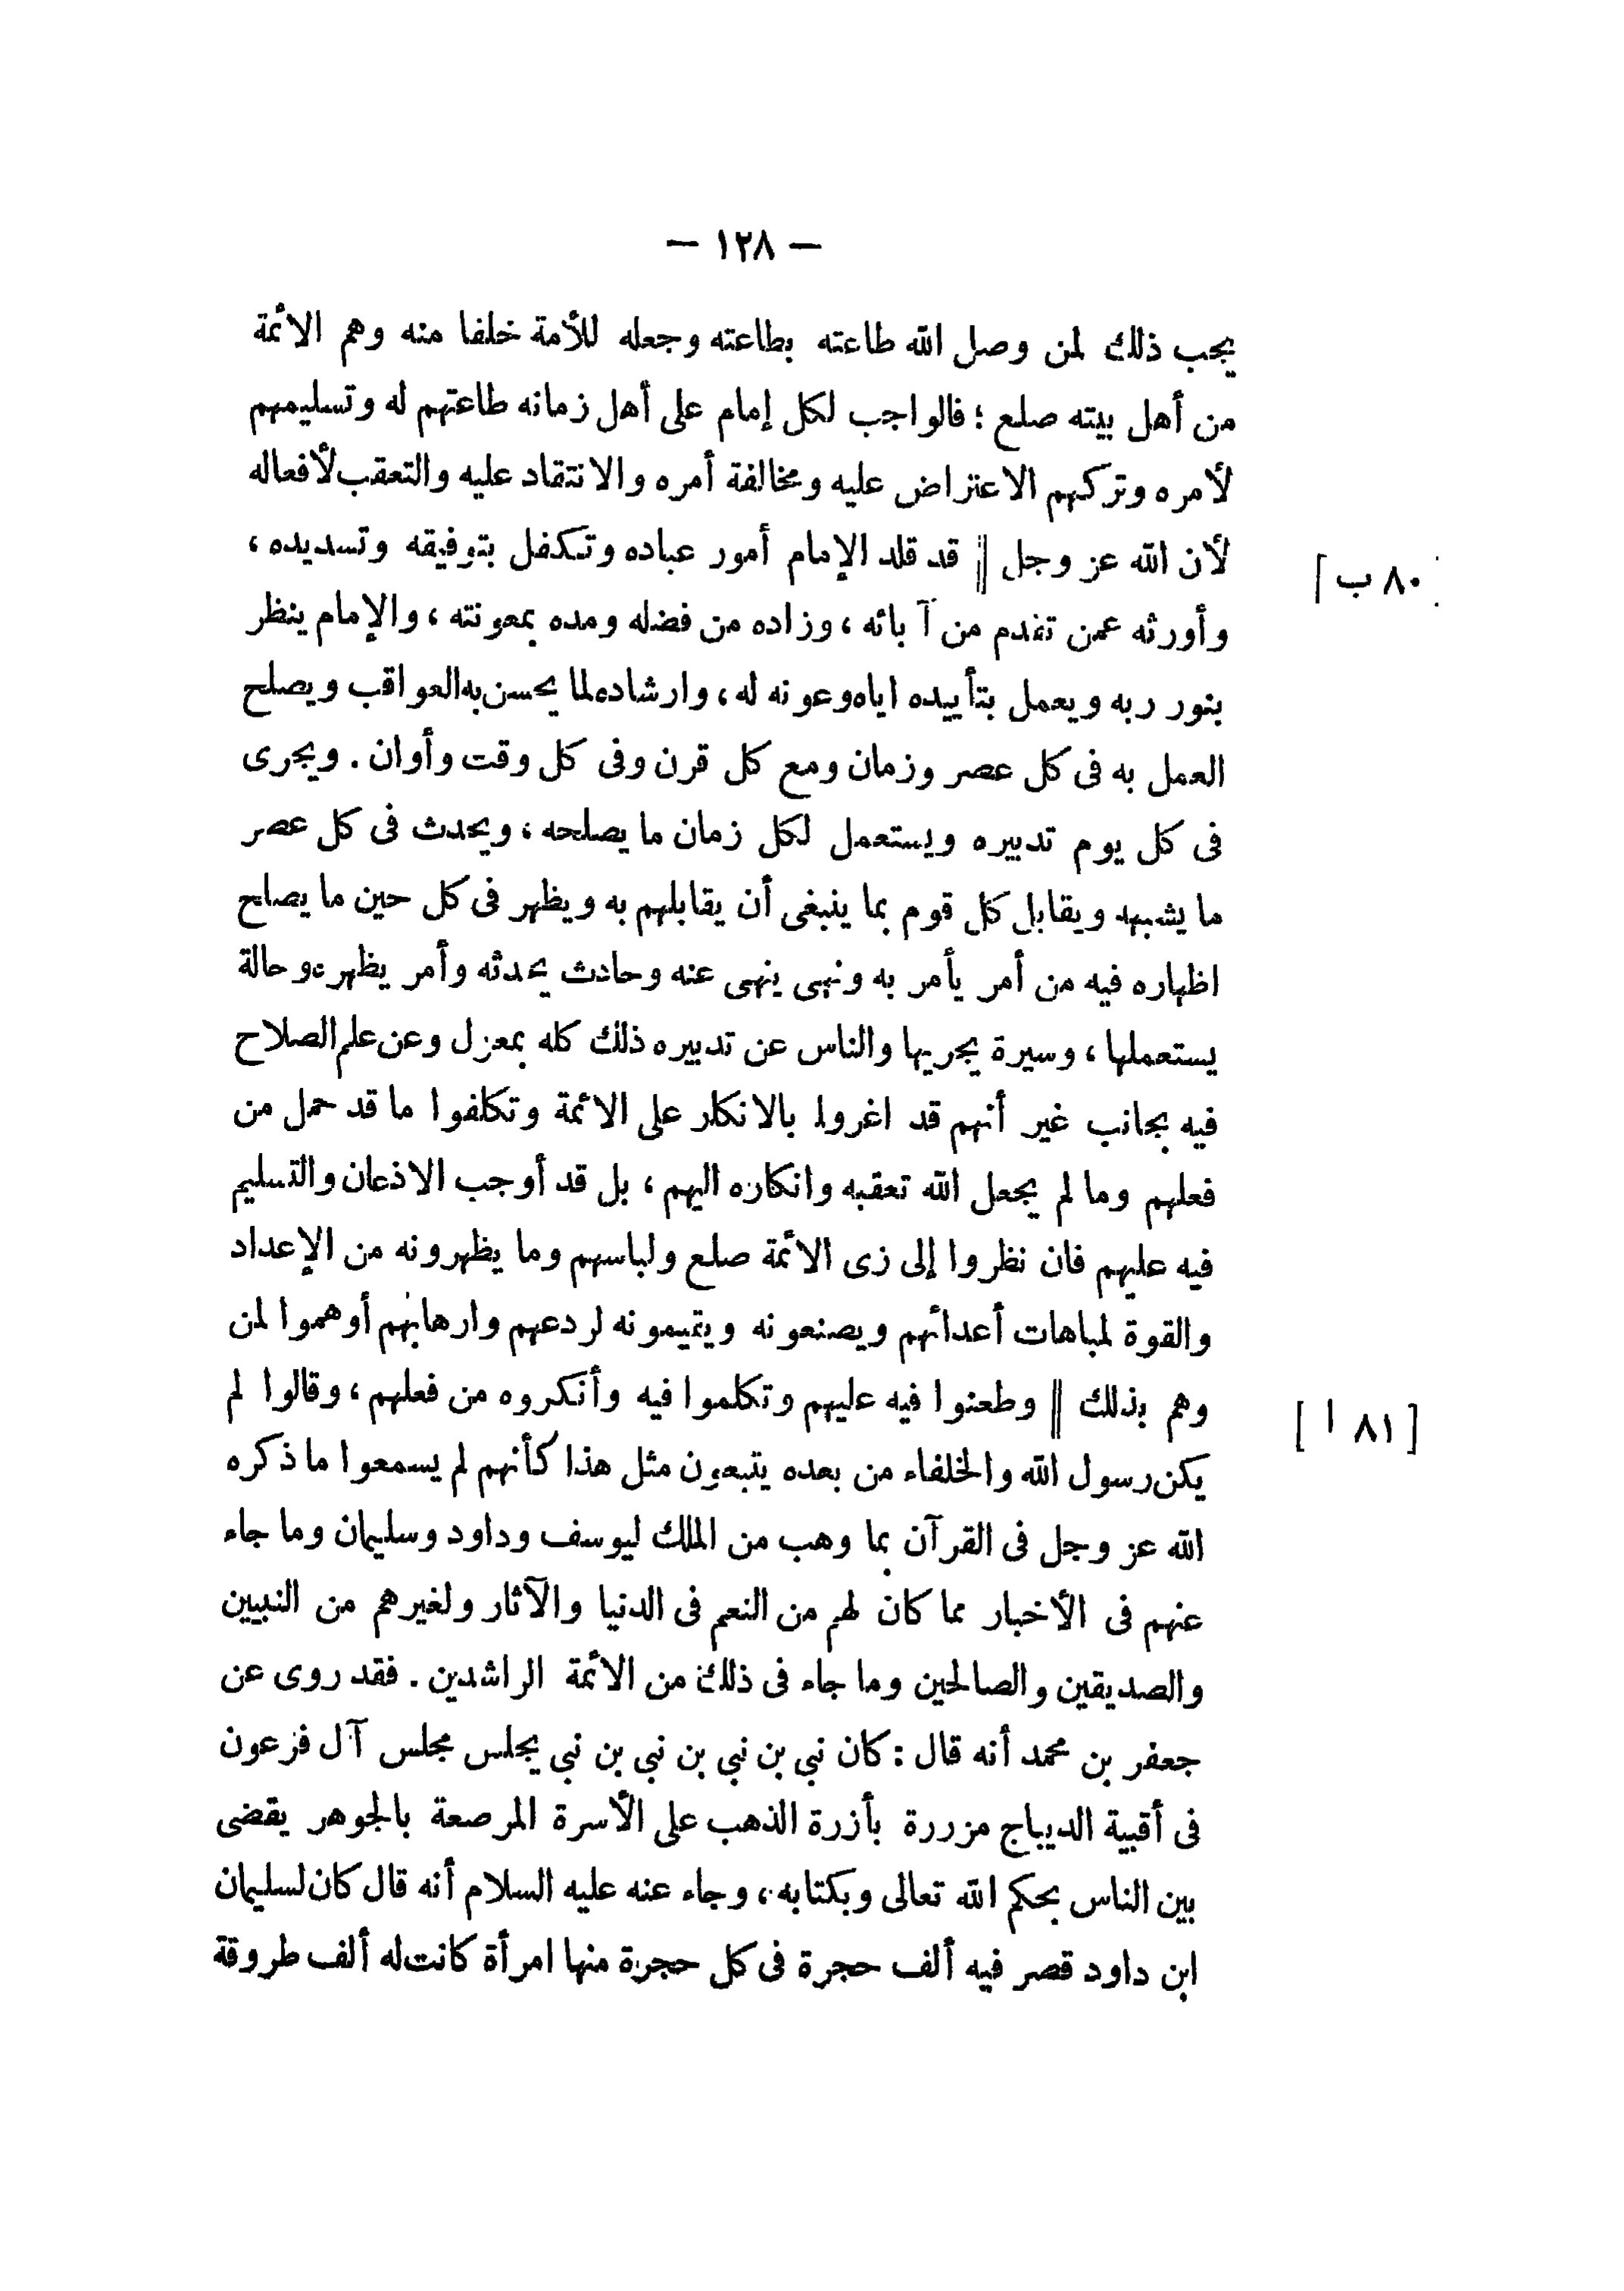 — ١٢٨ —
يجب ذلك لمن وصل الله طاعته بطاعته وجعله للأمة خلفا منه وهم الأئمة
من أهل بيته صلع ؛ فالواجب لكل إمام على أهل زمانه طاعتهم له وتسليمهم
لأمره وتركهم الاعتراض عليه ومخالفة أمره والانتقاد عليه والتعقب لأفعاله
لأن الله عز وجل || قد قلد الإمام أمور عباده وتكفل بتوفيقه وتسديده ،
[ ٨٠ ب ]
وأورثه عمن تقدم من آبائه ، وزاده من فضله ومده بمعونته ، والإمام ينظر
بنور ربه ويعمل بتأييده اياه وعونه له ، وارشاده لما يحسن به العواقب ويصلح
العمل به فى كل عصر وزمان ومع كل قرن وفى كل وقت وأوان . ويجرى
فى كل يوم تدبيره ويستعمل لكل زمان ما يصلحه ، ويحدث فى كل عصر
ما يشبهه ويقابل كل قوم بما ينبغى أن يقابلهم به ويظهر فى كل حين ما يصلح
اظهاره فيه من أمر يأمر به ونهى ينهى عنه وحادث يحدثه وأمر يظهره وحالة
يستعملها ، وسيرة يجريها والناس عن تدبيره ذلك كله بمعزل وعن علم الصلاح
فيه بجانب غير أنهم قد اغروا بالانكار على الائمة وتكلفوا ما قد حمل من
فعلهم وما لم يجعل الله تعقبه وانكاره اليهم ، بل قد أوجب الاذعان والتسليم
فيه عليهم فان نظروا إلى زى الائمة صلع ولباسهم وما يظهرونه من الإعداد
والقوة لمباهات أعدائهم ويصنعونه ويقيمونه لردعهم وارهابهم أوهموا لمن
وهم بذلك || وطعنوا فيه عليهم وتكلموا فيه وأنكروه من فعلهم ، وقالوا لم
[ ٨١ ا ]
يكن رسول الله والخلفاء من بعده يتبعون مثل هذا كأنهم لم يسمعوا ما ذكره
الله عز وجل فى القرآن بما وهب من الملك ليوسف وداود وسليمان وما جاء
عنهم فى الأخبار مما كان لهم من النعم فى الدنيا والآثار ولغيرهم من النبيين
والصديقين والصالحين وما جاء فى ذلك من الائمة الراشدين . فقد روى عن
جعفر بن محمد أنه قال : كان نبى بن نبى بن نبى بن نبى يجلس مجلس آل فرعون
فى أقبية الديباج مزررة بأزرة الذهب على الأسرة المرصعة بالجوهر يقضى
بين الناس بحكم الله تعالى وبكتابه ، وجاء عنه عليه السلام أنه قال كان لسليمان
ابن داود قصر فيه ألف حجرة فى كل حجرة منها امرأة كانت له ألف طروقة